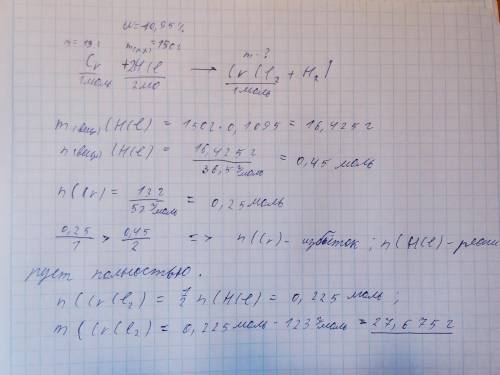 ω=10,95%
m=13г m(р-р)=150г m-?
Cr + 2HCl → CrCl₂ + H₂↑
1моль 2мо 1моль
m(вещ)(HCl) = 150г·0,1095 = 16,425г
n(вещ)(HCl) = 16,425г / 36,5г/моль = 0,45 моль
n(Cr) = 13г / 52г/моль = 0,25моль
0,25/1 > 0,45/2 => n(Cr)-избыток; n(HCl)-реаги
рует полностью.
n(CrCl₂) = 1/2 n(HCl) = 0,225 моль;
m(CrCl₂) = 0,225моль · 123г/моль = 27,675г